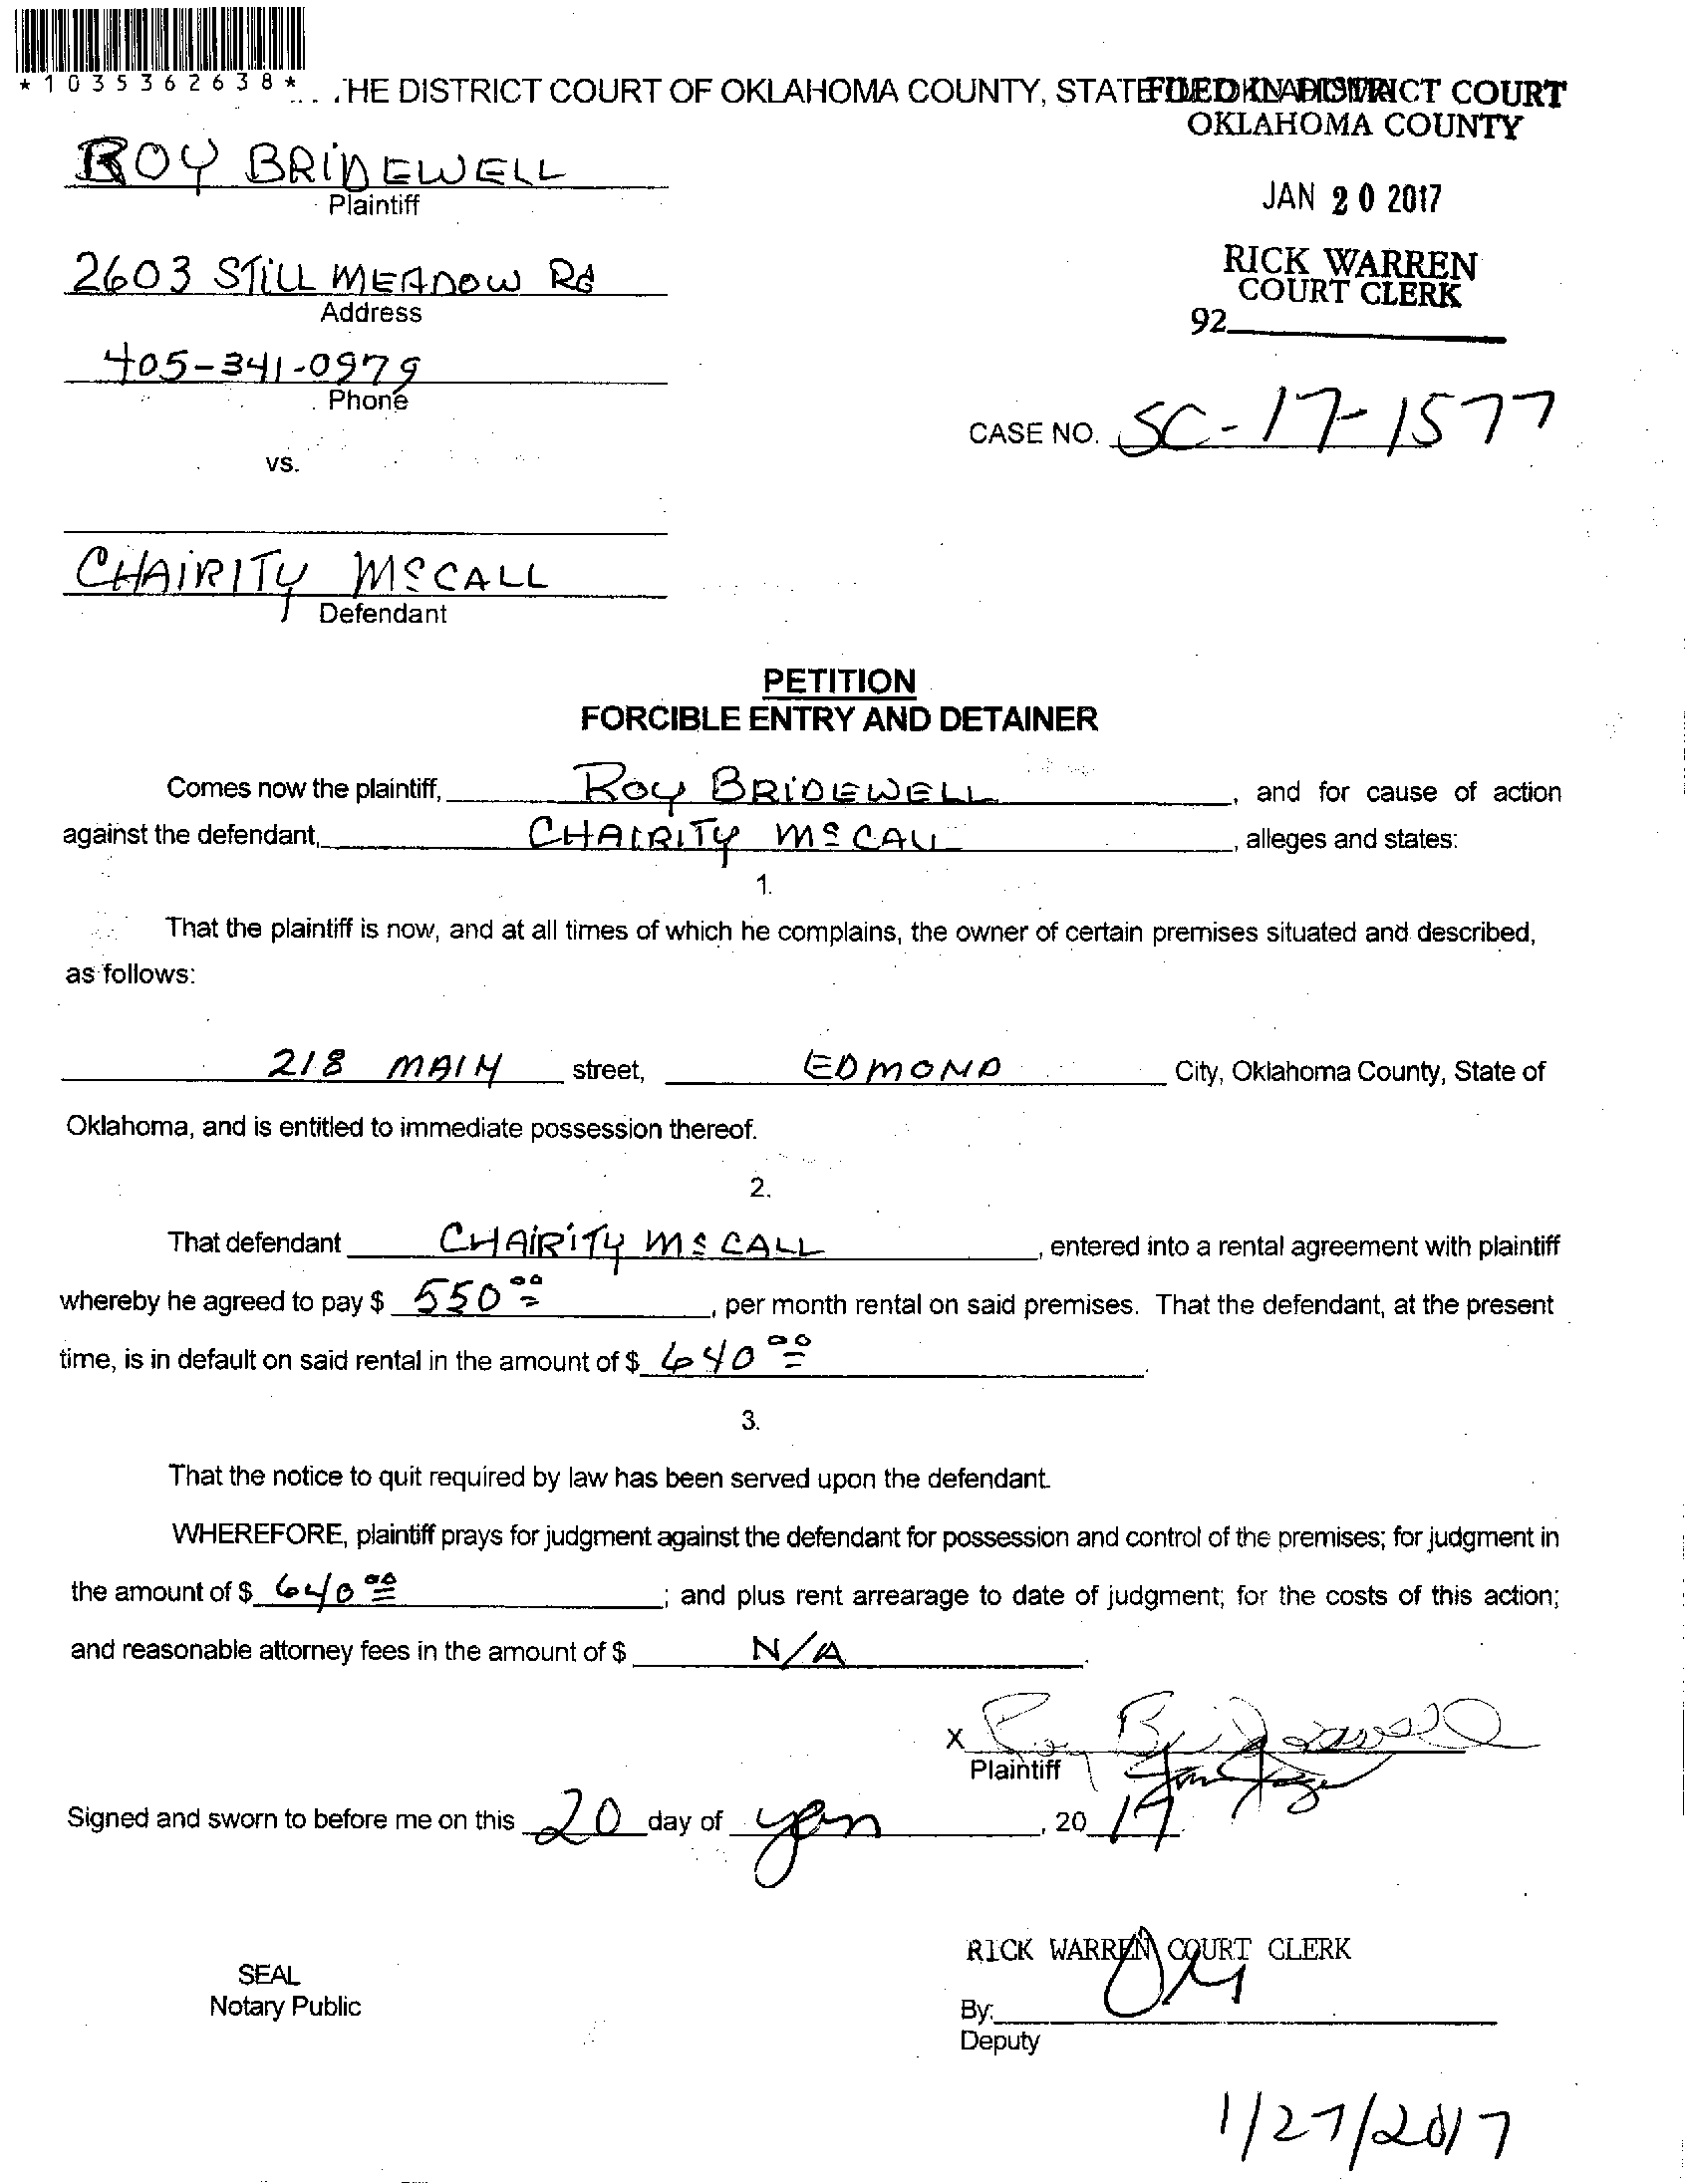 *1035362638*
HE DISTRICT COURT OF OKLAHOMA COUNTY, STATE
FILED IN DISTRICT COURT
OKLAHOMA COUNTY
JAN 20 2017
RICK WARREN
COURT CLERK
92
ROY BRIDEWELL
Plaintiff
2603 STILL MEADOW Rd
Address
405-341-0979
Phone
CASE NO. SC-17-1577
vs.
CHAIRITY McCALL
Defendant
PETITION
FORCIBLE ENTRY AND DETAINER
Comes now the plaintiff, ROY BRIDEWELL, and for cause of action
against the defendant, CHAIRITY McCALL, alleges and states:
1.
That the plaintiff is now, and at all times of which he complains, the owner of certain premises situated and described,
as follows:
218 MAIN street, EDMOND City, Oklahoma County, State of
Oklahoma, and is entitled to immediate possession thereof.
2.
That defendant CHAIRITY McCALL, entered into a rental agreement with plaintiff
whereby he agreed to pay $ 550.00, per month rental on said premises. That the defendant, at the present
time, is in default on said rental in the amount of $ 640.00.
3.
That the notice to quit required by law has been served upon the defendant.
WHEREFORE, plaintiff prays for judgment against the defendant for possession and control of the premises; for judgment in
the amount of $ 640.00; and plus rent arrearage to date of judgment; for the costs of this action;
and reasonable attorney fees in the amount of $ N/A.
X Roy Bridewell
Plaintiff
Signed and sworn to before me on this 20 day of Jan, 2017
RICK WARREN COURT CLERK
SEAL
Notary Public
By:
Deputy
1/27/2017